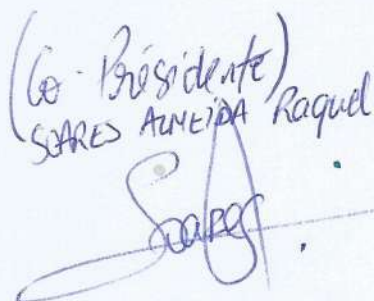 (Co-Présidente)
SOARES ALMEIDA Raquel
Soares